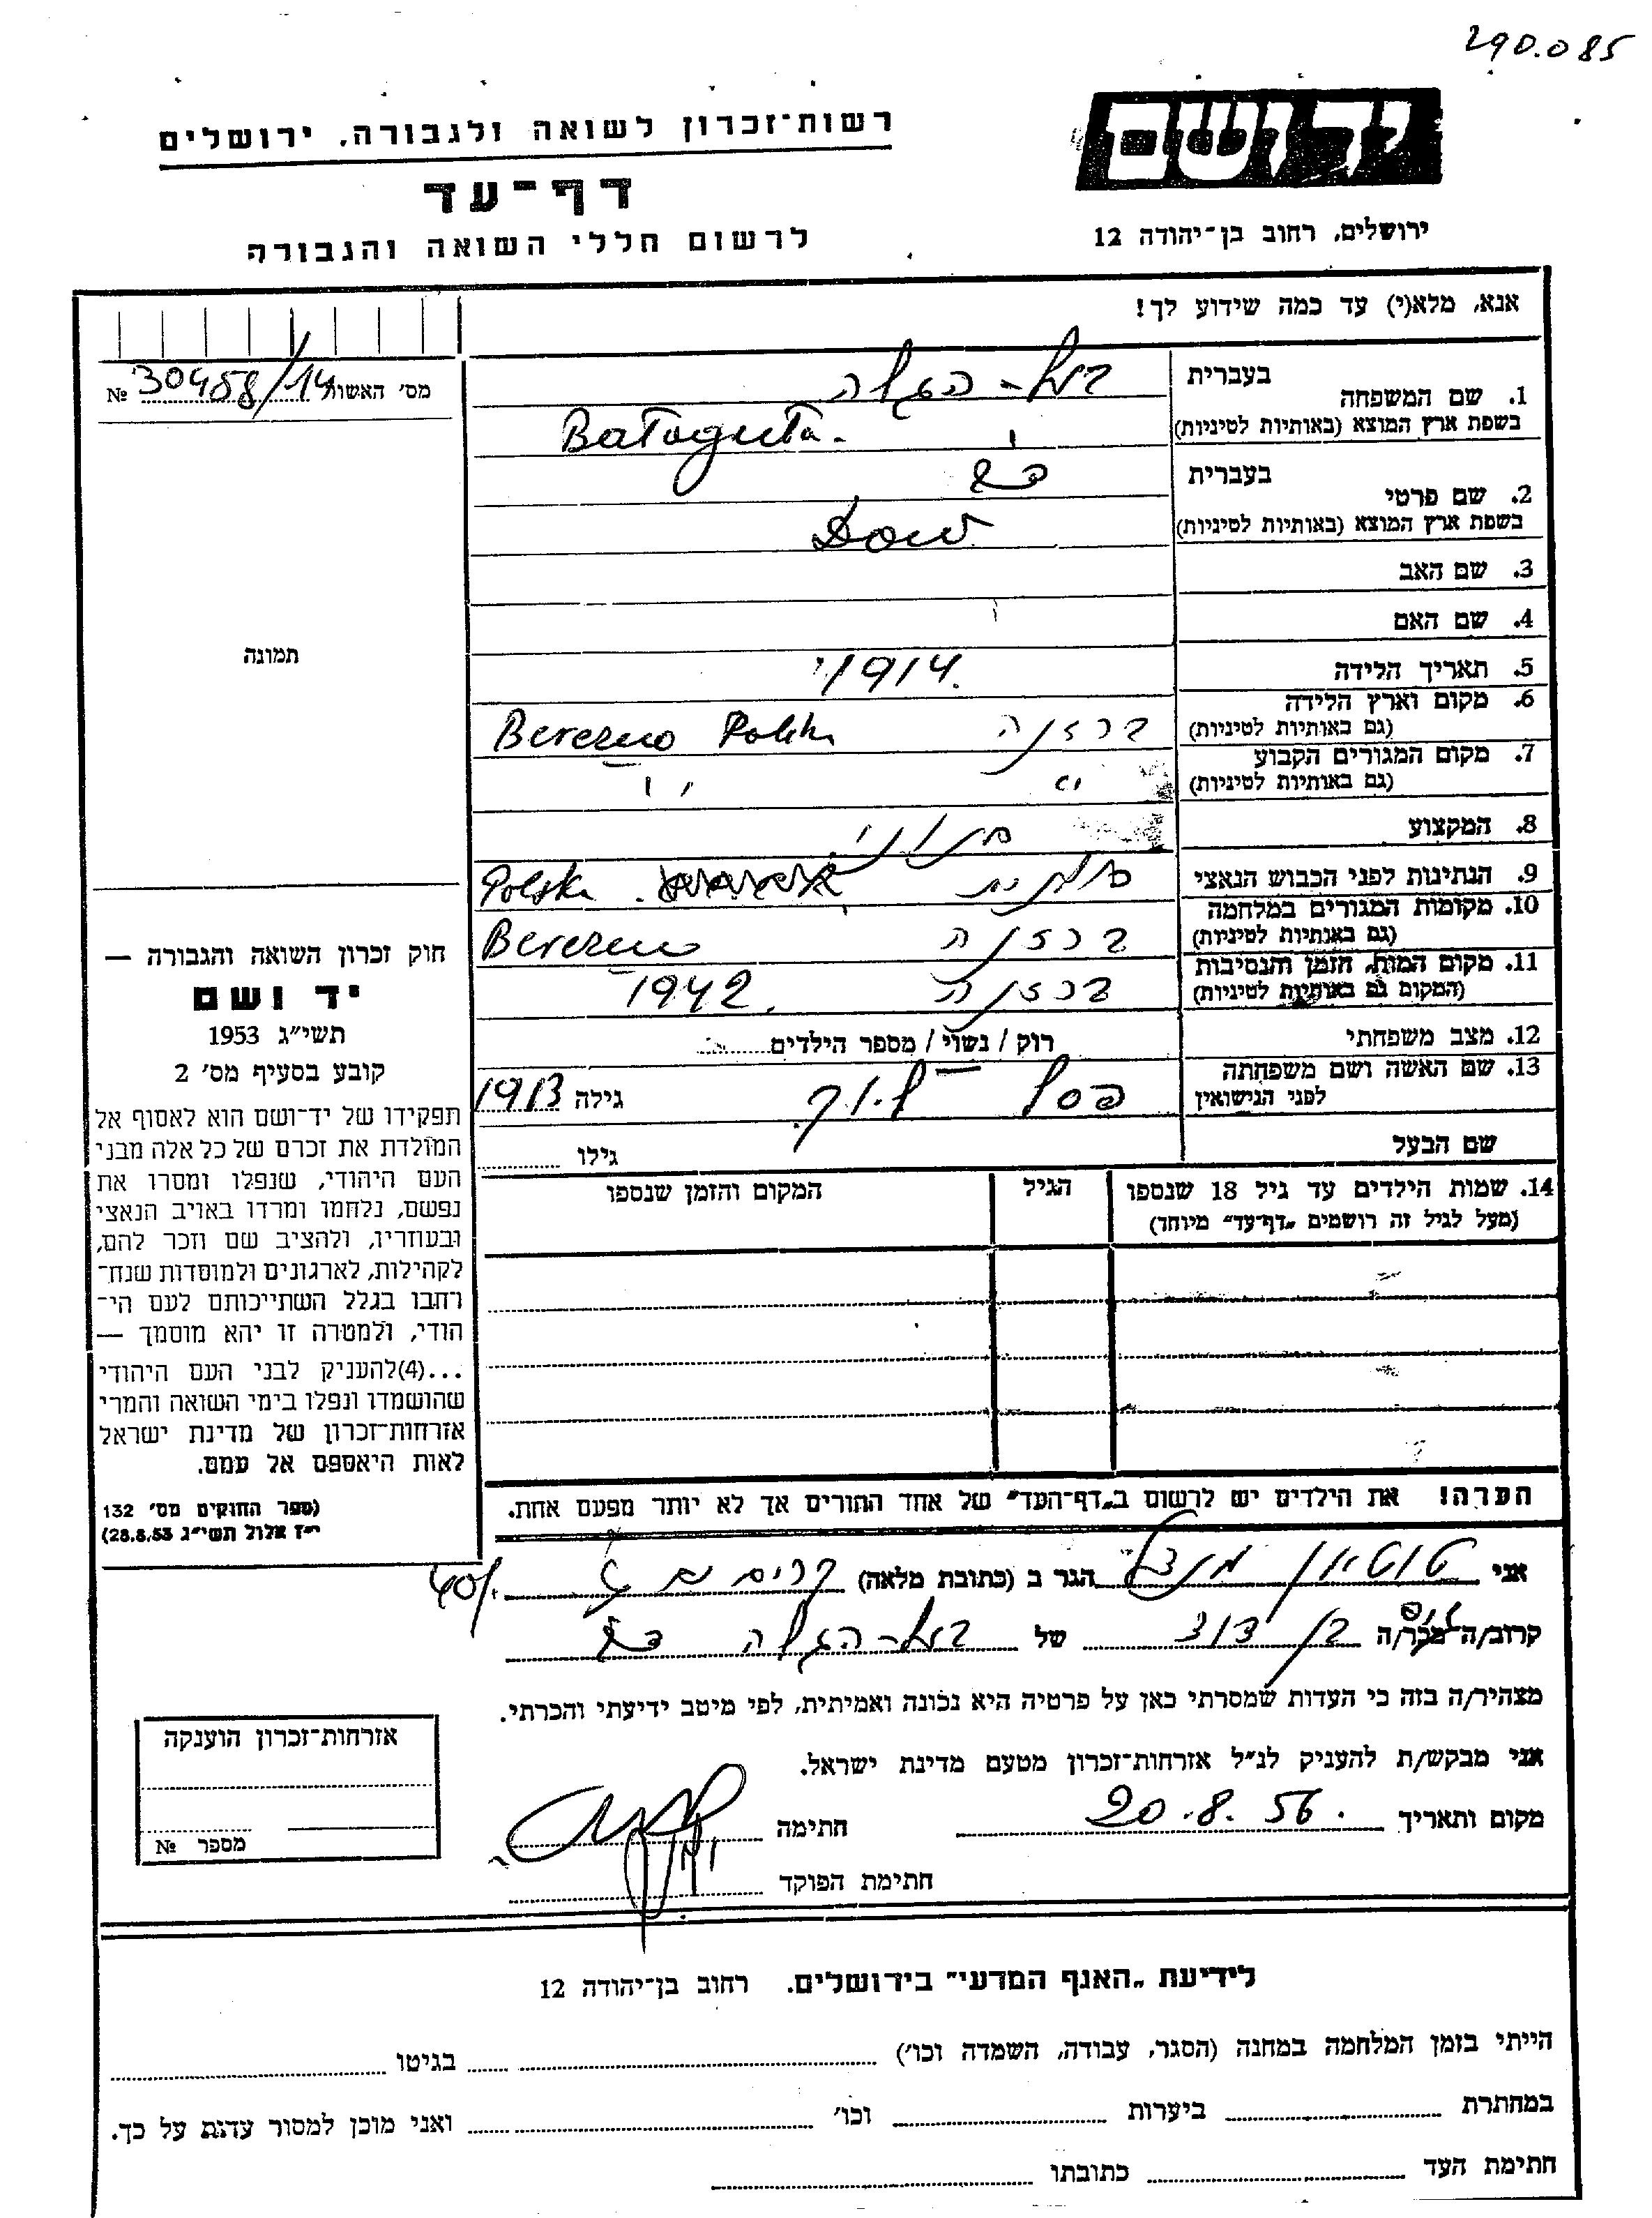 290.085
יד ושם
רשות־זכרון לשואה ולגבורה, ירושלים
דף־עד
לרשום חללי השואה והגבורה
ירושלים, רחוב בן־יהודה 12
אנא, מלא(י) עד כמה שידוע לך!
מס' האשות № 30458/14
1. שם המשפחה
בעברית
בשפת ארץ המוצא (באותיות לטיניות)
Batoguta.
2. שם פרטי
בעברית דב
בשפת ארץ המוצא (באותיות לטיניות) Dow
3. שם האב
4. שם האם
5. תאריך הלידה 1914.
6. מקום וארץ הלידה
(גם באותיות לטיניות) ברזנה Berezno Polska
7. מקום המגורים הקבוע
(גם באותיות לטיניות) " "
8. המקצוע
9. הנתינות לפני הכבוש הנאצי פולנית Polska
10. מקומות המגורים במלחמה
(גם באותיות לטיניות) ברזנה Berezno
11. מקום המות, הזמן והנסיבות
(המקום גם באותיות לטיניות) ברזנה 1942.
12. מצב משפחתי רוק / נשוי / מספר הילדים
13. שם האשה ושם משפחתה
לפני הנישואין פסל גילה 1913
שם הבעל גילו
14. שמות הילדים עד גיל 18 שנספו
(מעל לגיל זה רושמים „דף־עד" מיוחד)
הגיל
המקום והזמן שנספו
הערה! את הילדים יש לרשום ב„דף־העד" של אחד ההורים אך לא יותר מפעם אחת.
תמונה
חוק זכרון השואה והגבורה —
יד ושם
תשי״ג 1953
קובע בסעיף מס' 2
תפקידו של יד־ושם הוא לאסוף אל
המולדת את זכרם של כל אלה מבני
העם היהודי, שנפלו ומסרו את
נפשם, נלחמו ומרדו באויב הנאצי
ובעוזריו, ולהציב שם וזכר להם,
לקהילות, לארגונים ולמוסדות שנח־
רבו בגלל השתייכותם לעם הי־
הודי, ולמטרה זו יהא מוסמך —
...(4) להעניק לבני העם היהודי
שהושמדו ונפלו בימי השואה והמרי
אזרחות־זכרון של מדינת ישראל
לאות היאספם אל עמם.
(ספר החוקים מס' 132
י״ז אלול תשי״ג 28.8.53)
אני הגר ב (כתובת מלאה) 40/
קרוב/ה מכר/ה בן דוד של דב
מצהיר/ה בזה כי העדות שמסרתי כאן על פרטיה היא נכונה ואמיתית, לפי מיטב ידיעתי והכרתי.
אני מבקש/ת להעניק לנ״ל אזרחות־זכרון מטעם מדינת ישראל.
מקום ותאריך 20.8.56. חתימה
חתימת הפוקד
אזרחות־זכרון הוענקה
מספר №
לידיעת „האגף המדעי" בירושלים. רחוב בן־יהודה 12
הייתי בזמן המלחמה במחנה (הסגר, עבודה, השמדה וכו') בגיטו
במחתרת ביערות וכו' ואני מוכן למסור עדות על כך.
חתימת העד כתובתו